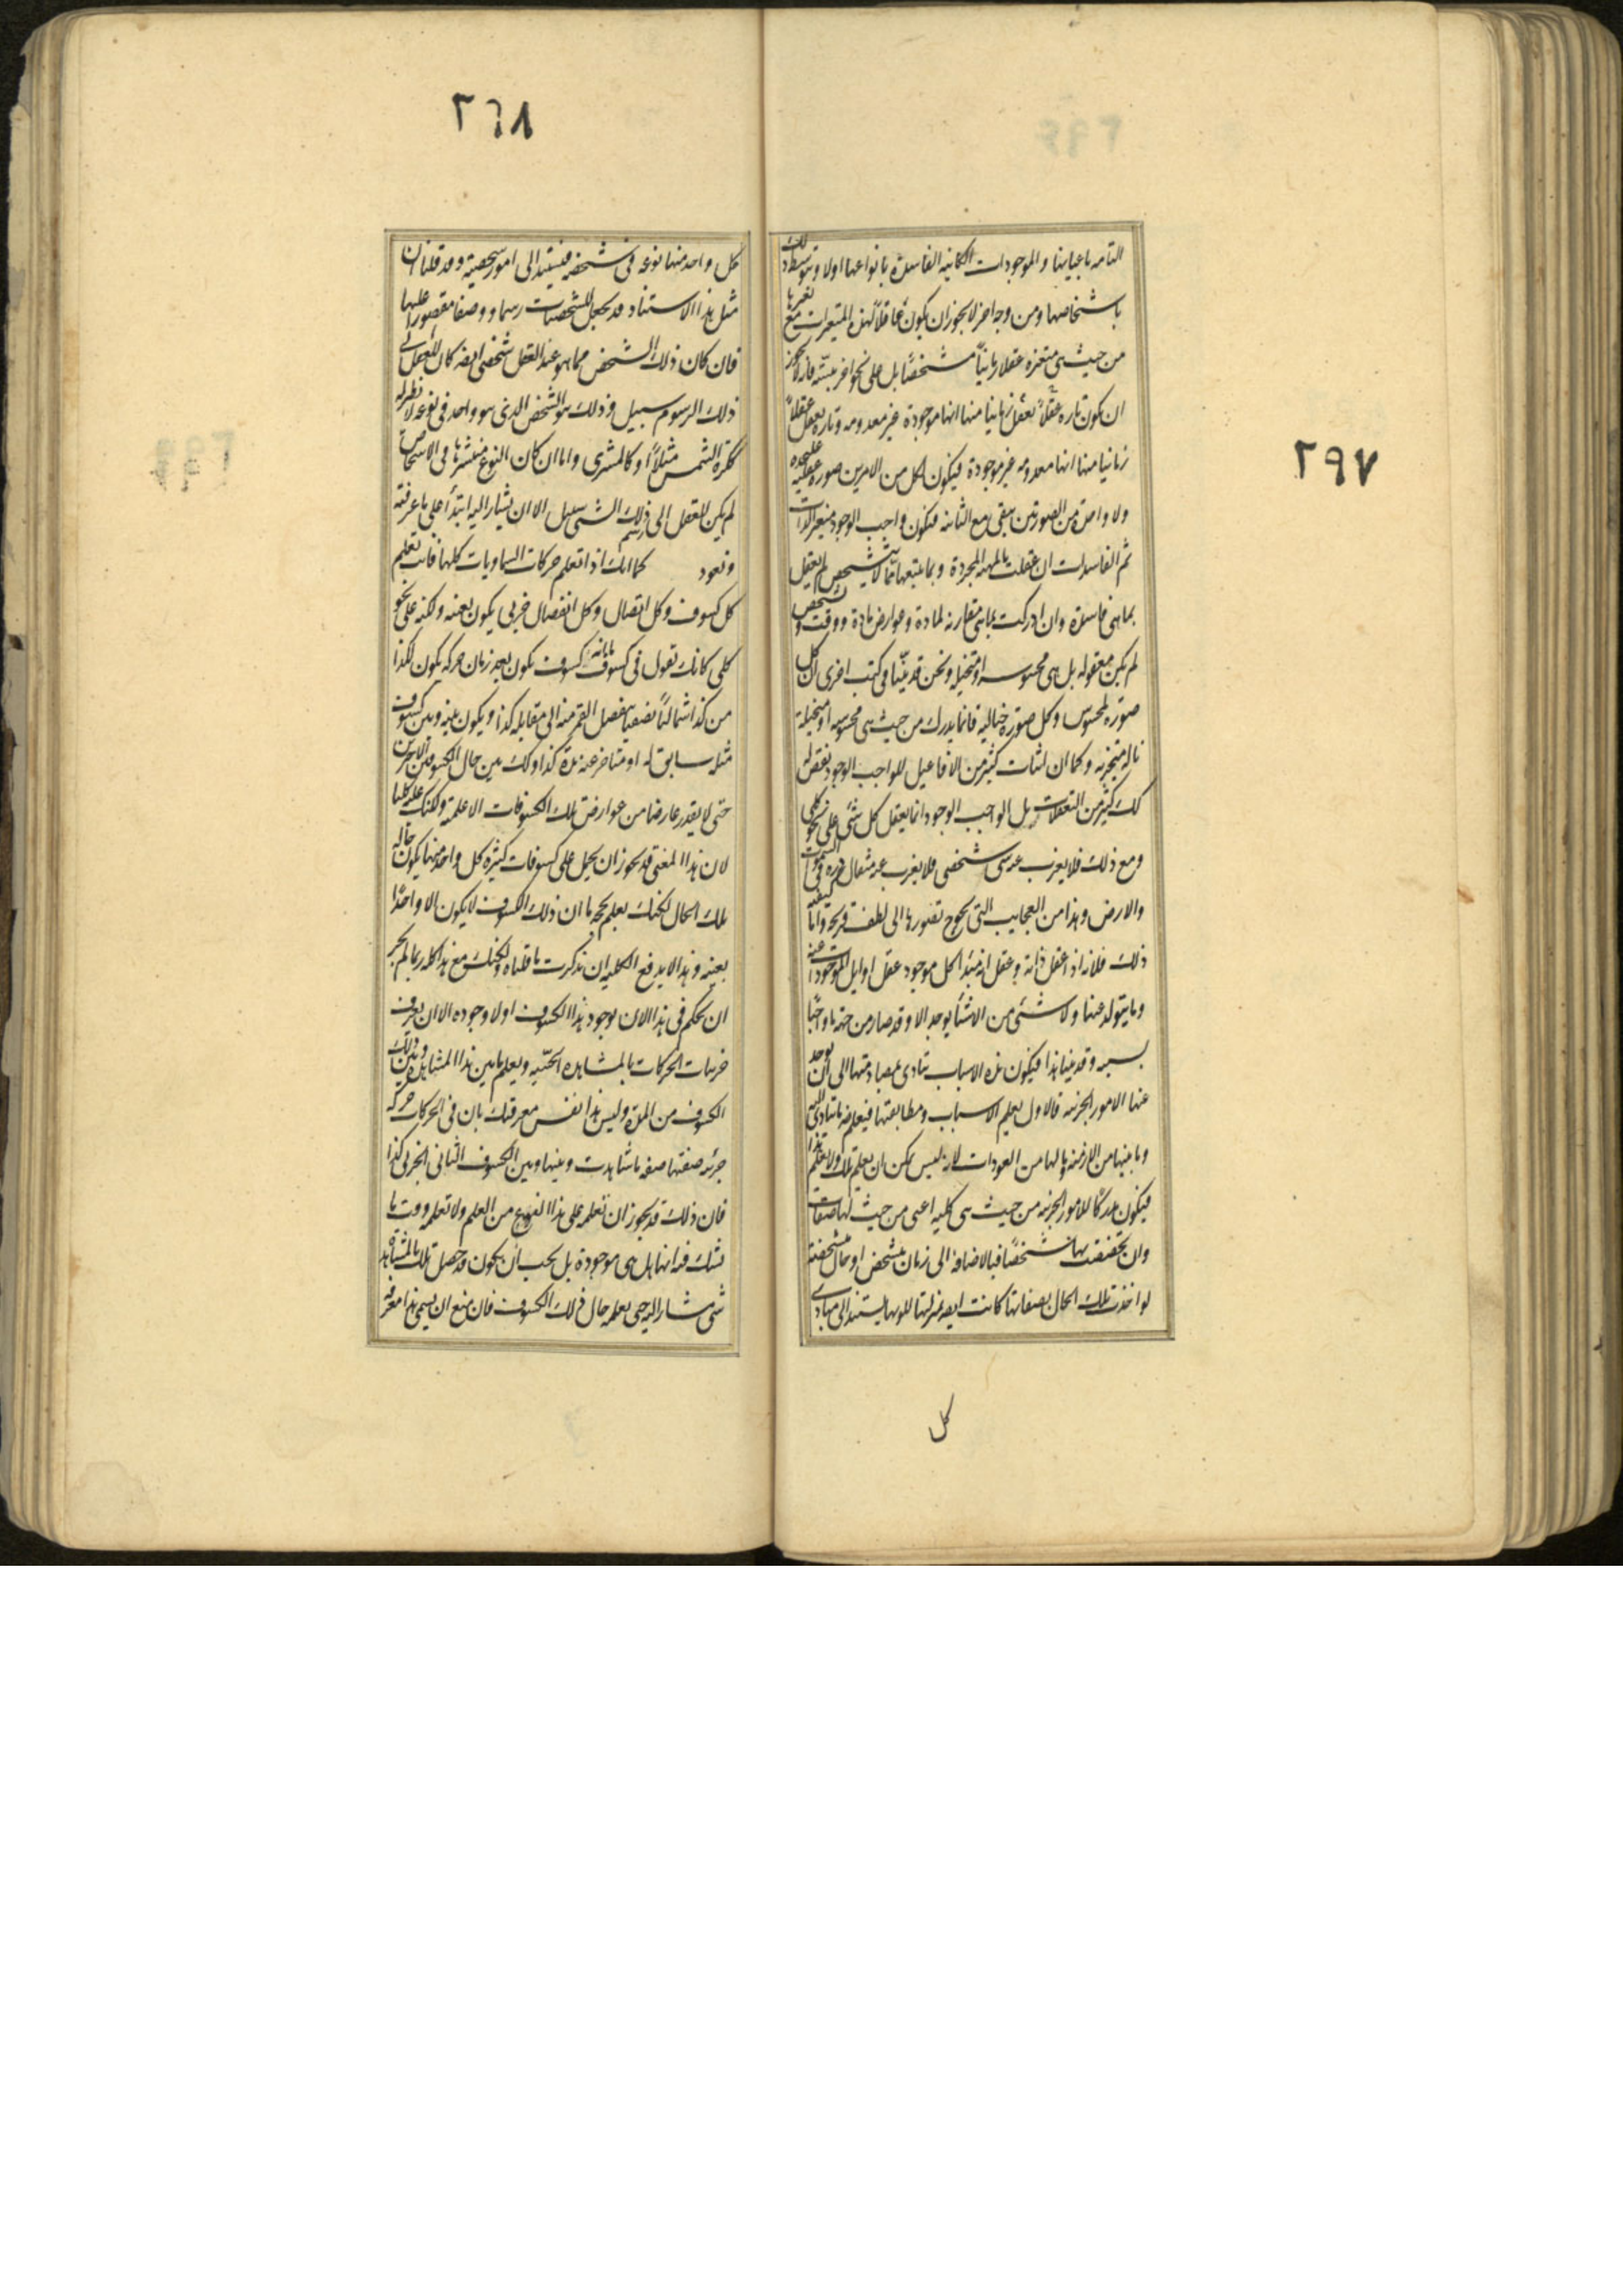 ٢٩٧
التامه باعيانها والموجودات الكائنة الفاسدة بانواعها اولا وبتوسط ذلك
باشخاصها ومن وجه اخر لا يجوز ان يكون عاقلاً لهذه المتغيرات مع تغيرها
من حيث هي متغيره عقلا زمانياً مشخصاً بل على نحو اخر نبينه فانه لا يجوز
ان يكون تاره عقلاً يعقل زمانيا منها انها موجودة غير معدومه وتاره يعقل عقلاً
زمانيا منها انها معدومه غير موجودة فيكون لكل من الامرين صوره عقليه عليحده
ولا واحدة من الصورتين تبقى مع الثانيه فيكون واجب الوجود متغير الذات
ثم الفاسدات ان عقلت بالمهية المجردة وبما يتبعها مما لا يتشخص لم يعقل
بما هي فاسدة وان ادركت بما هي مقارنه لمادة وعوارض مادة ووقت وتشخص
لم يكن معقوله بل هي محسوسه او متخيله ونحن قد بيّنا في كتب اخرى ان كل
صورة لمحسوس وكل صورة خياليه فانما يدرك من حيث هي محسوسه او متخيلة
بآلة متجزيه وكما ان اثبات كثير من الافاعيل للواجب الوجود نقص له
كك كثير من التعقلات بل الواجب الوجود انما يعقل كل شئ على نحو كلي
ومع ذلك فلا يعزب عنه شئ شخصي فلا يعزب عنه مثقال ذره في السموات
والارض وهذا من العجايب التي يحوج تصورها الى لطف قريحه واما كيفيه
ذلك فلانه اذا عقل ذاته وعقل انه مبدا كل موجود عقل اوايل الموجودات عنه
وما يتولد عنها ولا شئ من الاشيأ يوجد الا وقد صار من جهة ما واجبًا
بسببه وقد بينا هذا فيكون هذه الاسباب تتادى بمصادمتها الى ان يوجد
عنها الامور الجزئيه فالاول يعلم الاسباب ومطابقتها فيعلم ما تتادى اليه
وما بينها من الازمنه وما لها من العودات لانه ليس يمكن ان يعلم تلك ولا يعلم هذا
فيكون مدركًا للامور الجزئيه من حيث هي كليه اعنى من حيث لها صفات
وان تخصصت بها شخصًا فبالاضافه الى زمان متشخص او حال متشخصة
لو اخذت تلك الحال بصفاتها كانت ايضه بمنزلتها لكونها يستند الى مبادى
كل
٢٦٨
كل واحد منها نوعه في شخصه فيستند الى امور شخصية وقد قلنا ان
مثل هذا الاستناد قد يجعل للشخصيات رسما ووصفا مقصورا عليها
فان كان ذلك الشخص مما هو عند العقل شخصي ايضه كان للعقل الى
ذلك المرسوم سبيل وذلك هو الشخص الذي هو واحد في نوعه لا نظير له
ككرة الشمس مثلاً او كالمشترى واما ان كان النوع منتشرا في الاشخاص
لم يكن للعقل الى رسم ذلك الشئ سبيل الا ان يشار اليه ابتدأ على ما عرفته
ونعود كما انك اذا تعلم حركات السماويات كلها فانت تعلم
كل كسوف وكل اتصال وكل انفصال جزئي يكون بعينه ولكنه على نحو
كلي كانك تقول في كسوف ما انه كسوف يكون بعد زمان حركه يكون لكذا
من كذا شماليًا نصفيا ينفصل القمر منه الى مقابله كذا ويكون بينه وبين كسوف
مثله سابق له او متاخر عنه مدة كذا وكك بين حال الكسوفين الاخرين
حتى لا يقدر عارضا من عوارض تلك الكسوفات الا علمته ولكنك علمته كليا
لان هذا المعنى قد يجوز ان يحمل على كسوفات كثيره كل واحد منها يكون حاله
تلك الحال لكنك بعلم بحجه ما ان ذلك الكسوف لا يكون الا واحدًا
بعينه وهذا لا يدفع الكليه ان تذكرت ما قلناه ولكنك مع هذا كله ربما لم يجز
ان يحكم في هذا الان بوجود هذا الكسوف اولا وجوده الا ان يعرف
جزئيات الحركات بالمشاهدة الحسّيه ويعلم ما بين هذا المشاهد وبين ذلك
الكسوف من المدة وليس هذا نفس معرفتك بان في الحركات حركه
جزئيه صفتها صفه ما شاهدت وبينها وبين الكسوف الثاني الجزئي كذا
فان ذلك قد يجوز ان تعلمه على هذا النوع من العلم ولا تعلمه ووقت ما
تشك فيه انها هل هي موجودة بل يجب ان يكون قد حصل تلك بالمشاهد
شئ مشار اليه حتى يعلم حال ذلك الكسوف فان منع ان يسمى هذا معرفه